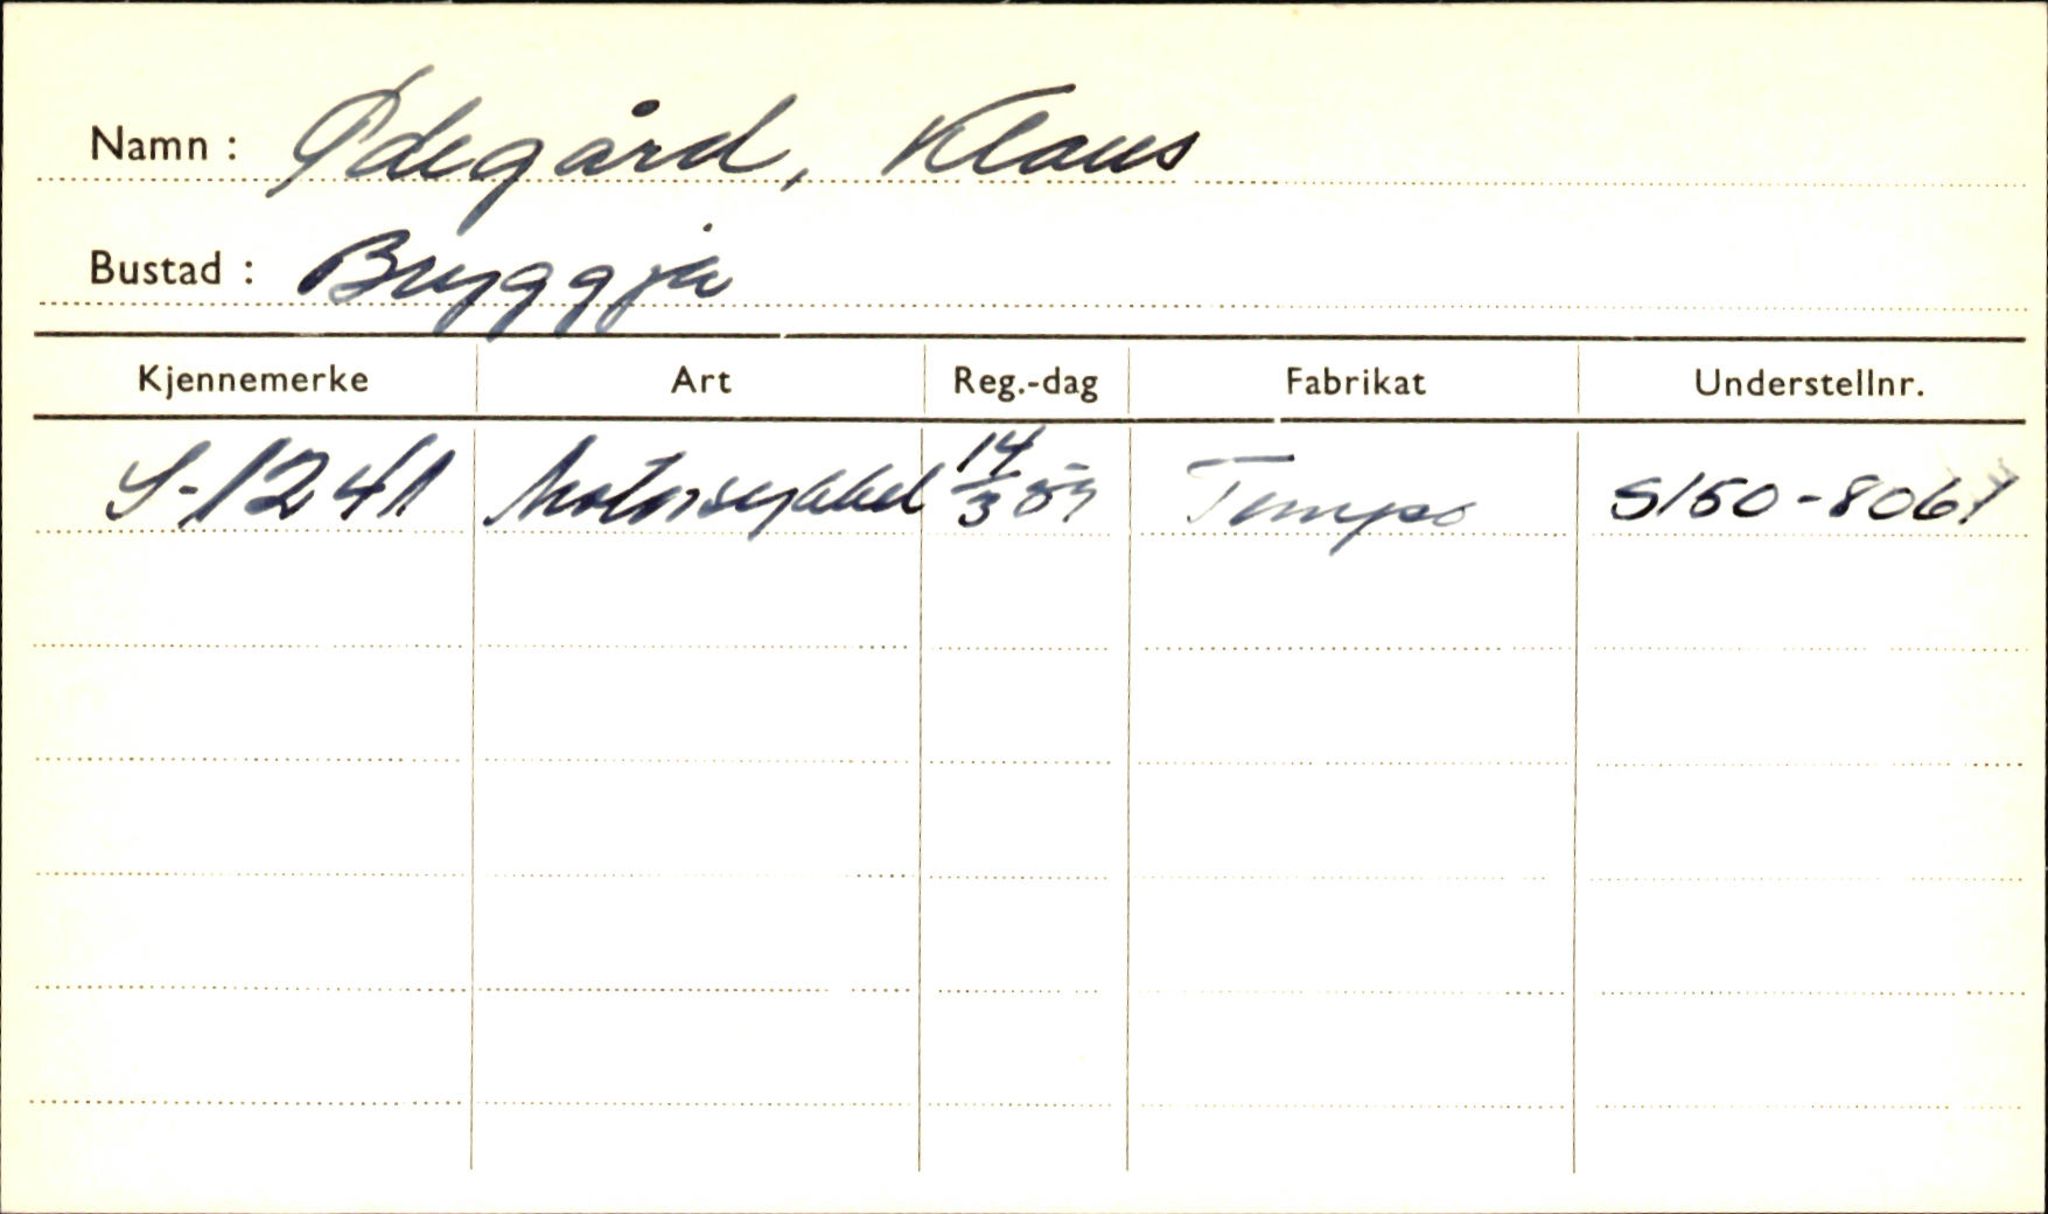 Namn : Ødegård, Klaus
Bustad : Bryggja
Kjennemerke Art Reg.-dag Fabrikat Understellnr.
S-1241 Motorsykkel 14/3 59 Tempo S150-8061